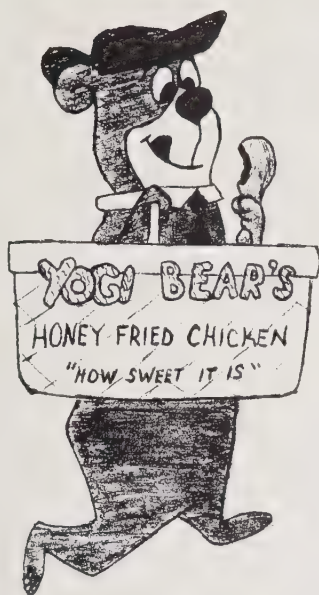 YOGI BEAR'S
HONEY FRIED CHICKEN
"HOW SWEET IT IS"